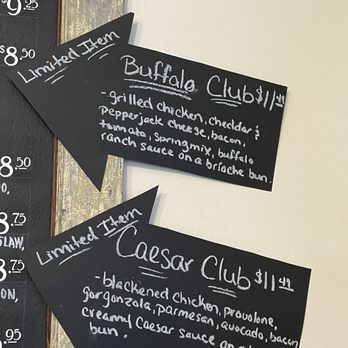 9.25
$8.50
8.50
8.75
SLAW,
8.75
ON,
.95
Limited Item
Buffalo Club $11.49
- grilled chicken, cheddar &
pepperjack cheese, bacon,
tomato, springmix, buffalo
ranch sauce on a brioche bun.
Limited Item
Caesar Club $11.49
- blackened chicken, provolone,
gorgonzola, parmesan, avocado, bacon
creamy Caesar sauce on a
bun.